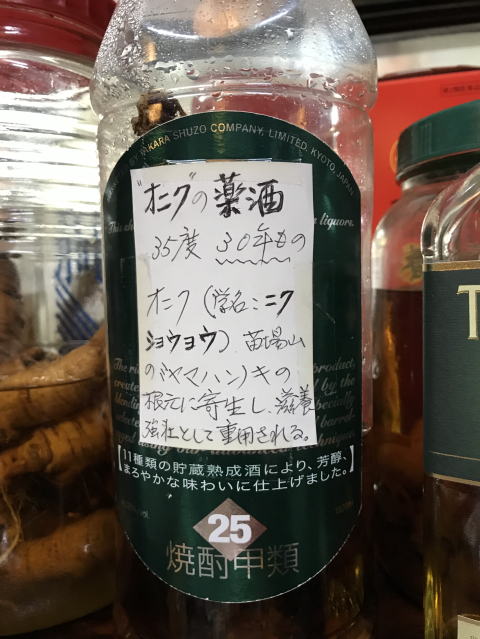 BY TAKARA SHUZO COMPANY, LIMITED. KYOTO, JAPAN
"オニク"の薬酒
35度 30年もの
オニク(学名:ニク
ショウヨウ) 苗場山
のミヤマハンノキの
根元に寄生し、滋養
強壮として重用される。
【11種類の貯蔵熟成酒により、芳醇、
まろやかな味わいに仕上げました。】
25
焼酎甲類